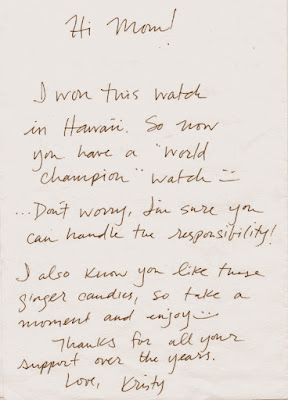 Hi Mom!
I won this watch
in Hawaii. So now
you have a "world
champion" watch :)
...Don't worry, I'm sure you
can handle the responsibility!
I also know you like these
ginger candies, so take a
moment and enjoy :)
Thanks for all your
support over the years.
Love, Kristy